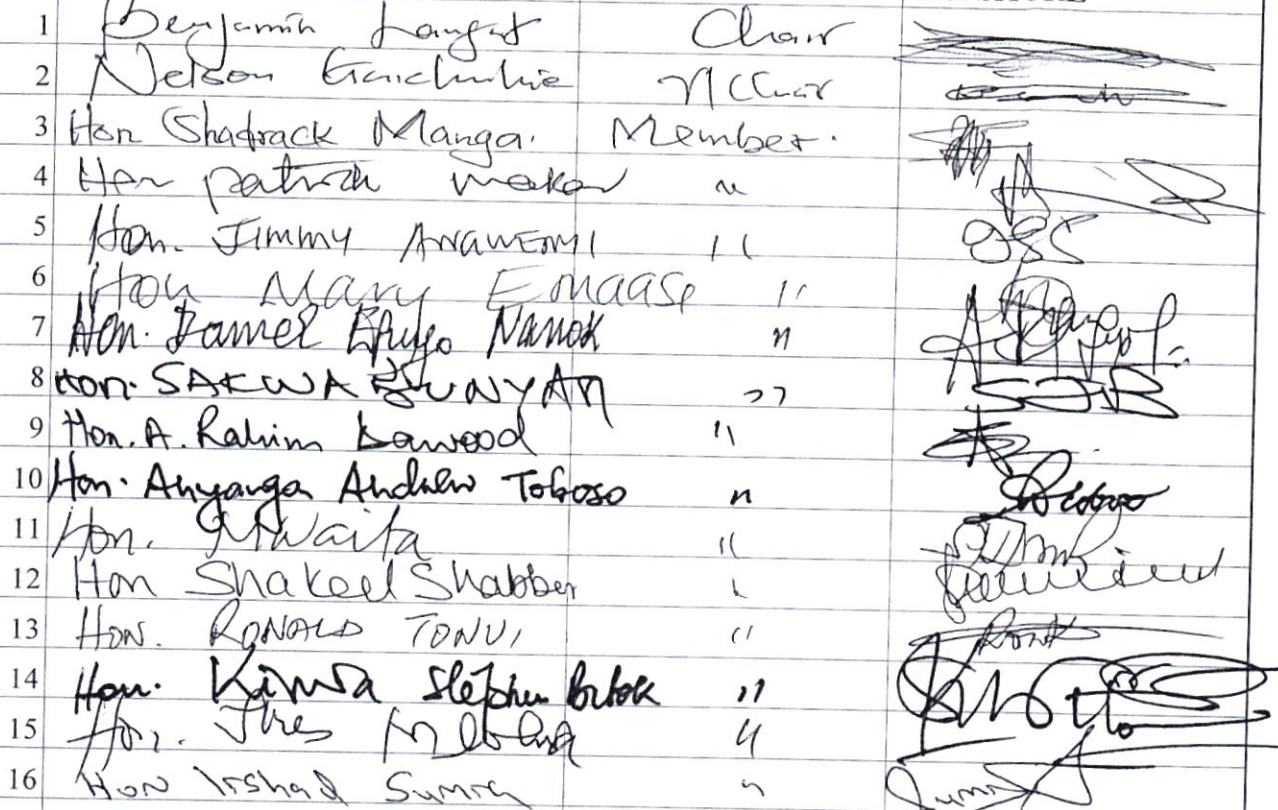 1 Benjamin Langat Chair
2 Nelson Gaichuhie V/Chair
3 Hon Shadrack Manga. Member.
4 Hon Patrick Makau "
5 Hon. JIMMY ANGWENYI "
6 Hon Mary Emaase "
7 Hon. Daniel Epuyo Nanok "
8 Hon. SAKWA BUNYASI "
9 Hon. A. Rahim Dawood "
10 Hon. Anyanga Andrew Toboso "
11 Hon. Mwaita "
12 Hon Shakeel Shabber "
13 HON. RONALD TONUI "
14 Hon. Kirwa Stephen Bitok "
15 Hon. "
16 Hon Irshad Sumra "